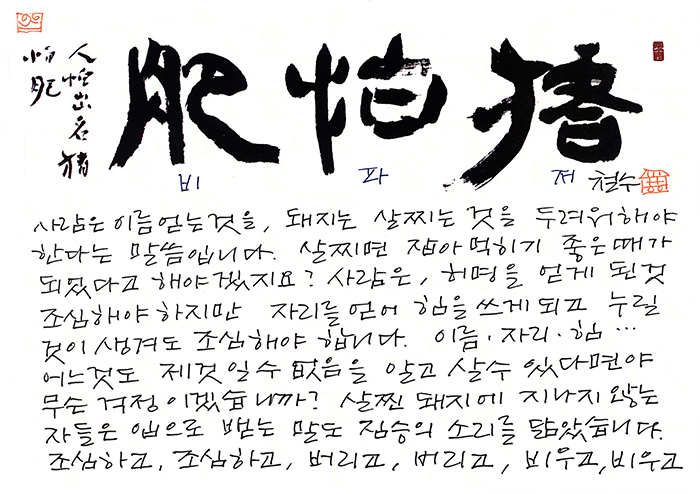 猪怕肥
저 파 비
人怕出名猪
怕肥
철수
사람은 이름얻는것을, 돼지는 살찌는 것을 두려워해야
한다는 말씀입니다. 살찌면 잡아먹히기 좋은때가
되었다고 해야겠지요? 사람은, 허명을 얻게 된것
조심해야 하지만 자리를 얻어 힘을 쓰게되고 누릴
것이 생겨도 조심해야 합니다. 이름·자리·힘…
어느것도 제것일수 없음을 알고 살수 있다면야
무슨 걱정이겠습니까? 살찐 돼지에 지나지 않는
자들은 입으로 뱉는 말도 짐승의 소리를 닮았습니다.
조심하고, 조심하고, 버리고, 버리고, 비우고, 비우고